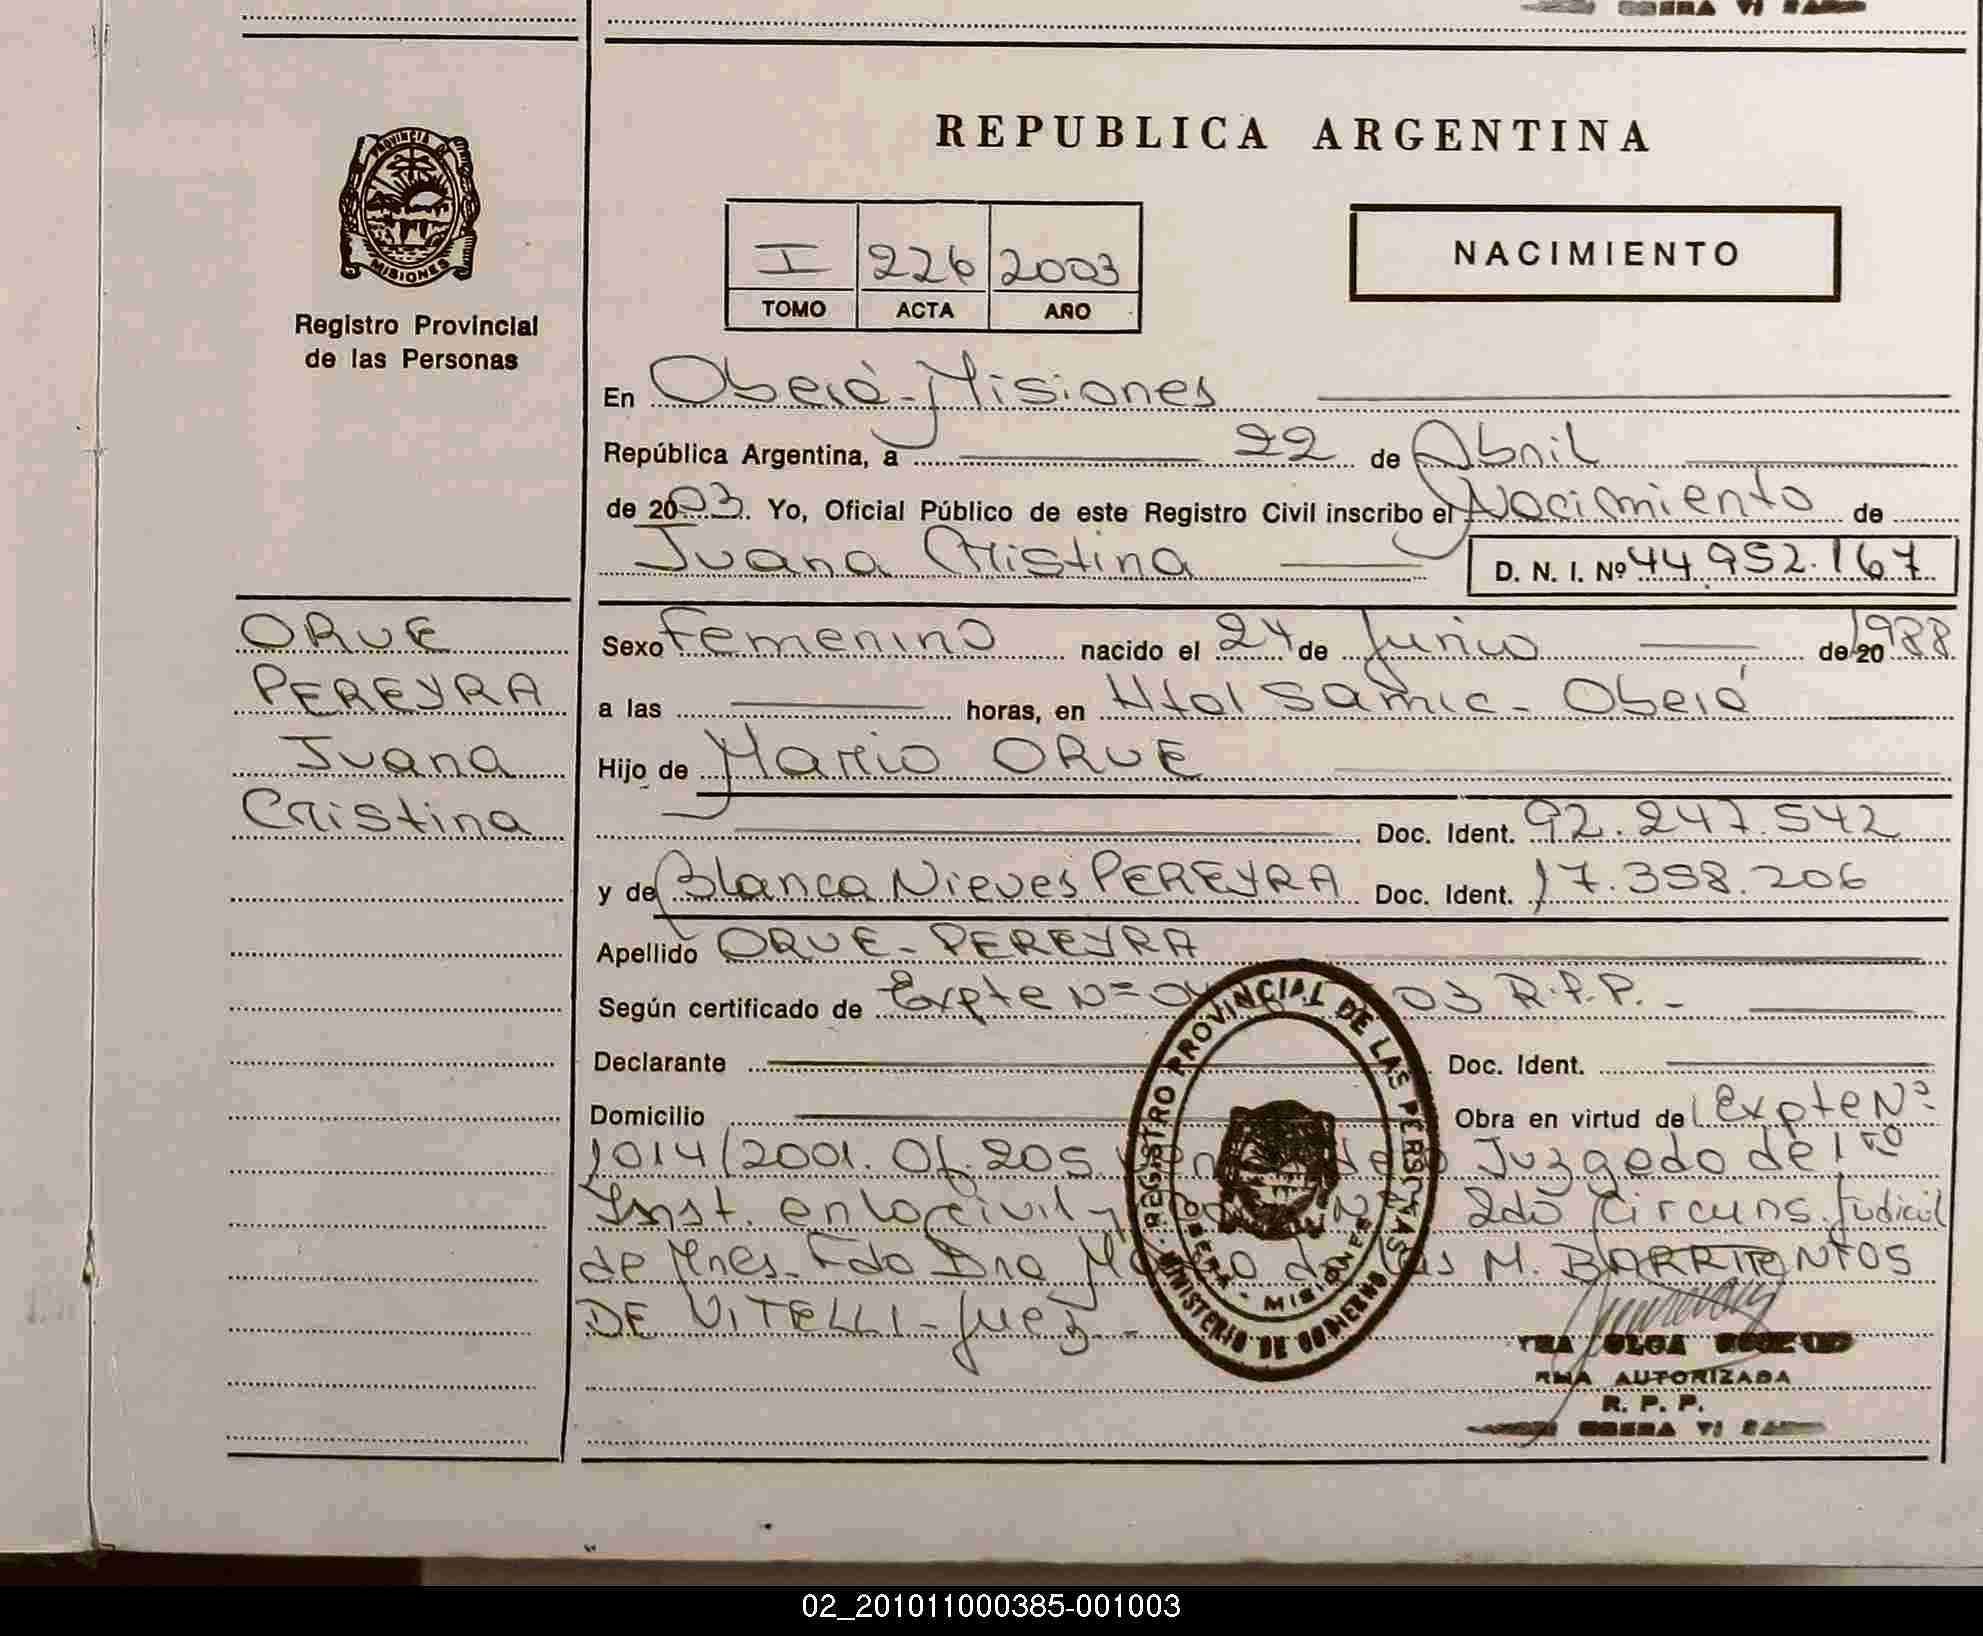 REPUBLICA ARGENTINA
PROVINCIA DE
MISIONES
Registro Provincial
de las Personas
I 226 2003
TOMO ACTA AÑO
NACIMIENTO
En Oberá-Misiones
República Argentina, a 22 de Abril
de 2003. Yo, Oficial Público de este Registro Civil inscribo el Nacimiento de
Juana Cristina
D. N. I. Nº 44.952.167
ORUE
PEREYRA
Juana
Cristina
Sexo Femenino nacido el 24 de Junio de 20 1988
a las horas, en Htal Samic - Oberá
Hijo de Mario ORUE
Doc. Ident. 92.247.542
y de Blanca Nieves PEREYRA Doc. Ident. 17.358.206
Apellido ORUE - PEREYRA
Según certificado de Expte Nº 03 R.P.P. -
Declarante Doc. Ident.
Domicilio Obra en virtud del Expte Nº
1014/2001. Of. 205. Juzgado de 1ra
Inst. en lo civil y Nº 2da Circuns. Judicial
de Mnes. Fdo Dra M. BARRIENTOS
DE VITELLI - Juez. -
REGISTRO PROVINCIAL DE LAS PERSONAS
MINISTERIO DE GOBIERNO
OBERA - MISIONES
OLGA
AUTORIZADA
R. P. P.
OBERA
02_201011000385-001003